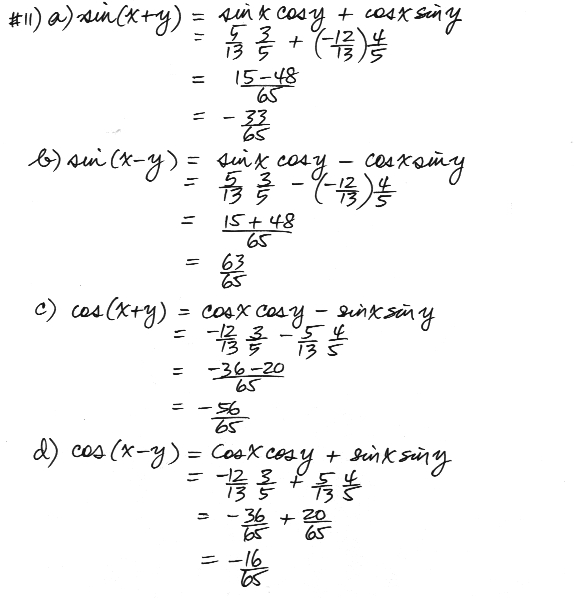 #11) a) sin(x+y) = sin x cos y + cos x sin y
= 5/13 3/5 + (-12/13) 4/5
= 15-48/65
= - 33/65
b) sin(x-y) = sin x cos y - cos x sin y
= 5/13 3/5 - (-12/13) 4/5
= 15+48/65
= 63/65
c) cos(x+y) = cos x cos y - sin x sin y
= -12/13 3/5 - 5/13 4/5
= -36-20/65
= -56/65
d) cos(x-y) = cos x cos y + sin x sin y
= -12/13 3/5 + 5/13 4/5
= -36/65 + 20/65
= -16/65